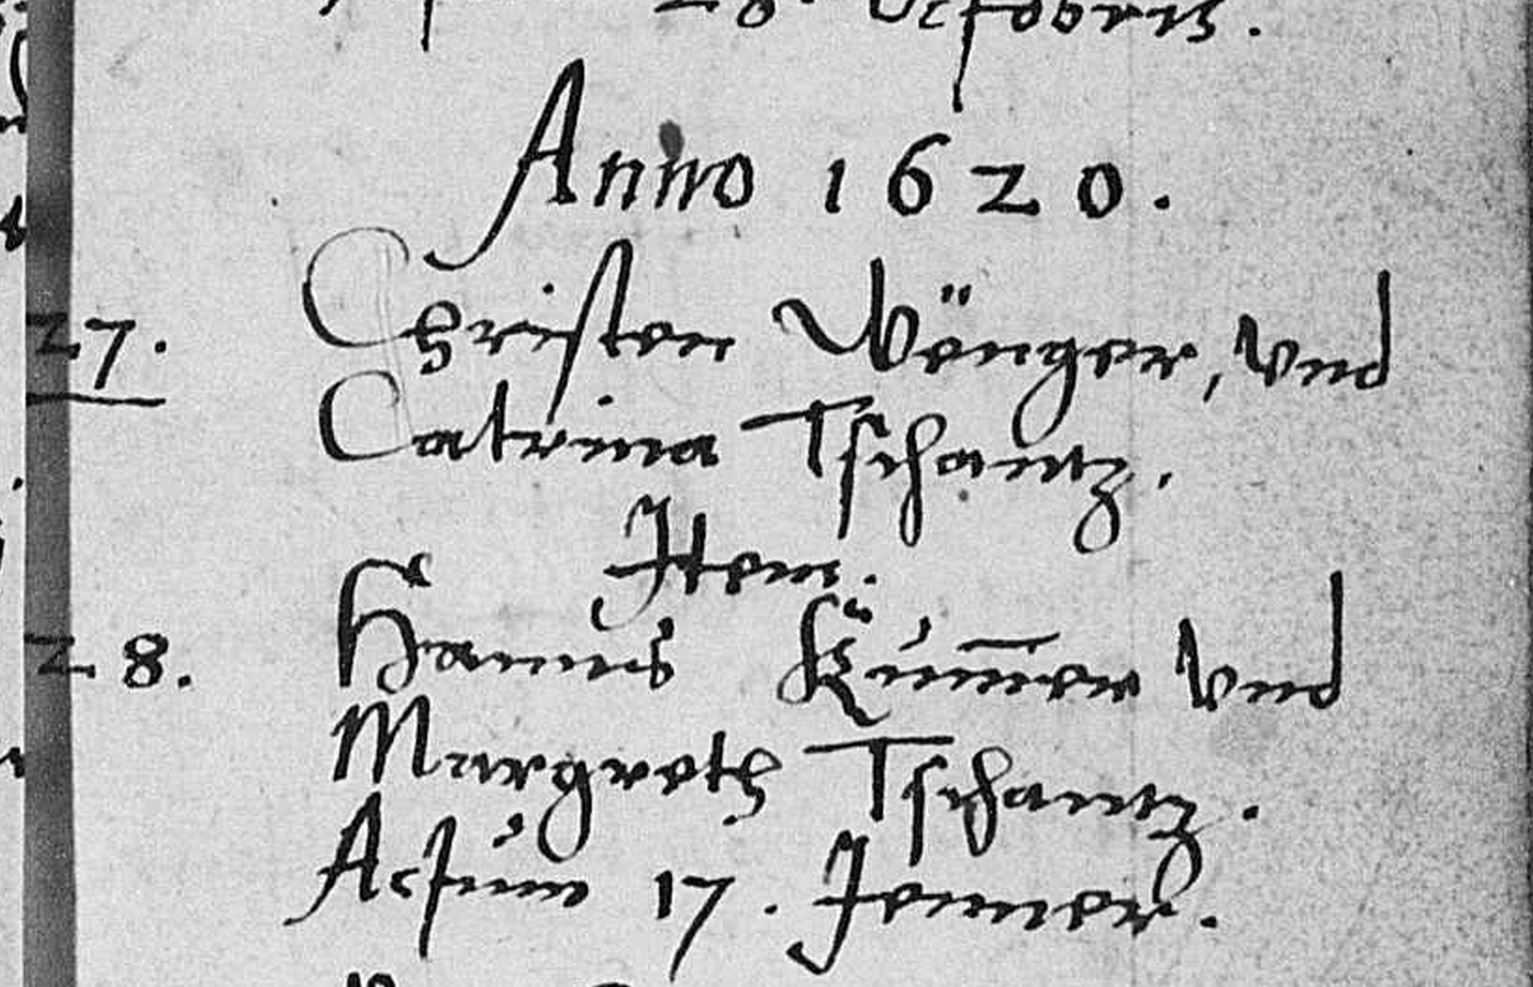 28. Octobris.
Anno 1620.
27. Christen Wënger, vnd
Catrina Tschantz.
Item.
28. Hanns Kùm̄er vnd
Margreth Tschantz.
Actum 17. Jenner.